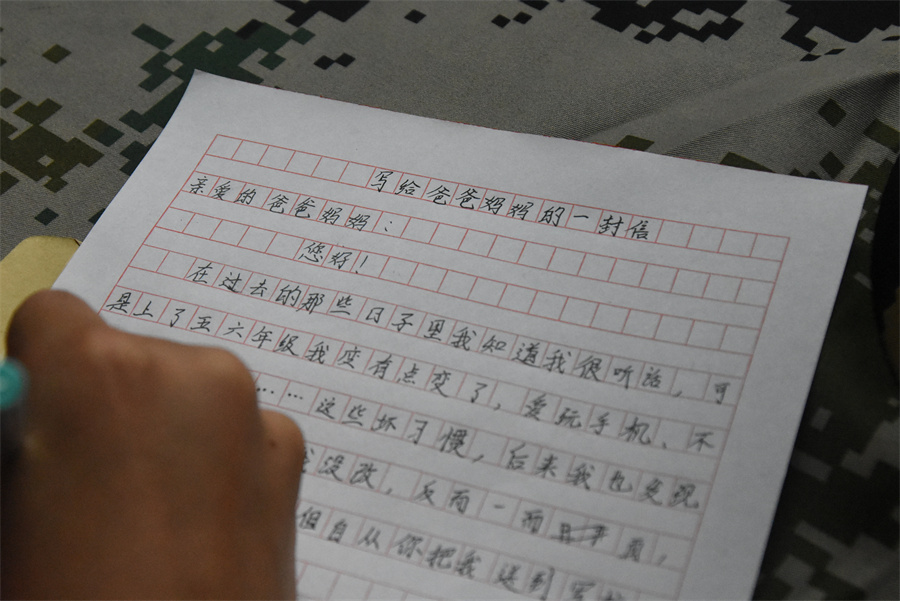 写给爸爸妈妈的一封信
亲爱的爸爸妈妈：
您好！
在过去的那些日子里我知道我很听话，可
是上了五六年级我变有点变了，爱玩手机、不
……这些坏习惯，后来我也发现
我没改，反而一而
但自从你把我送到